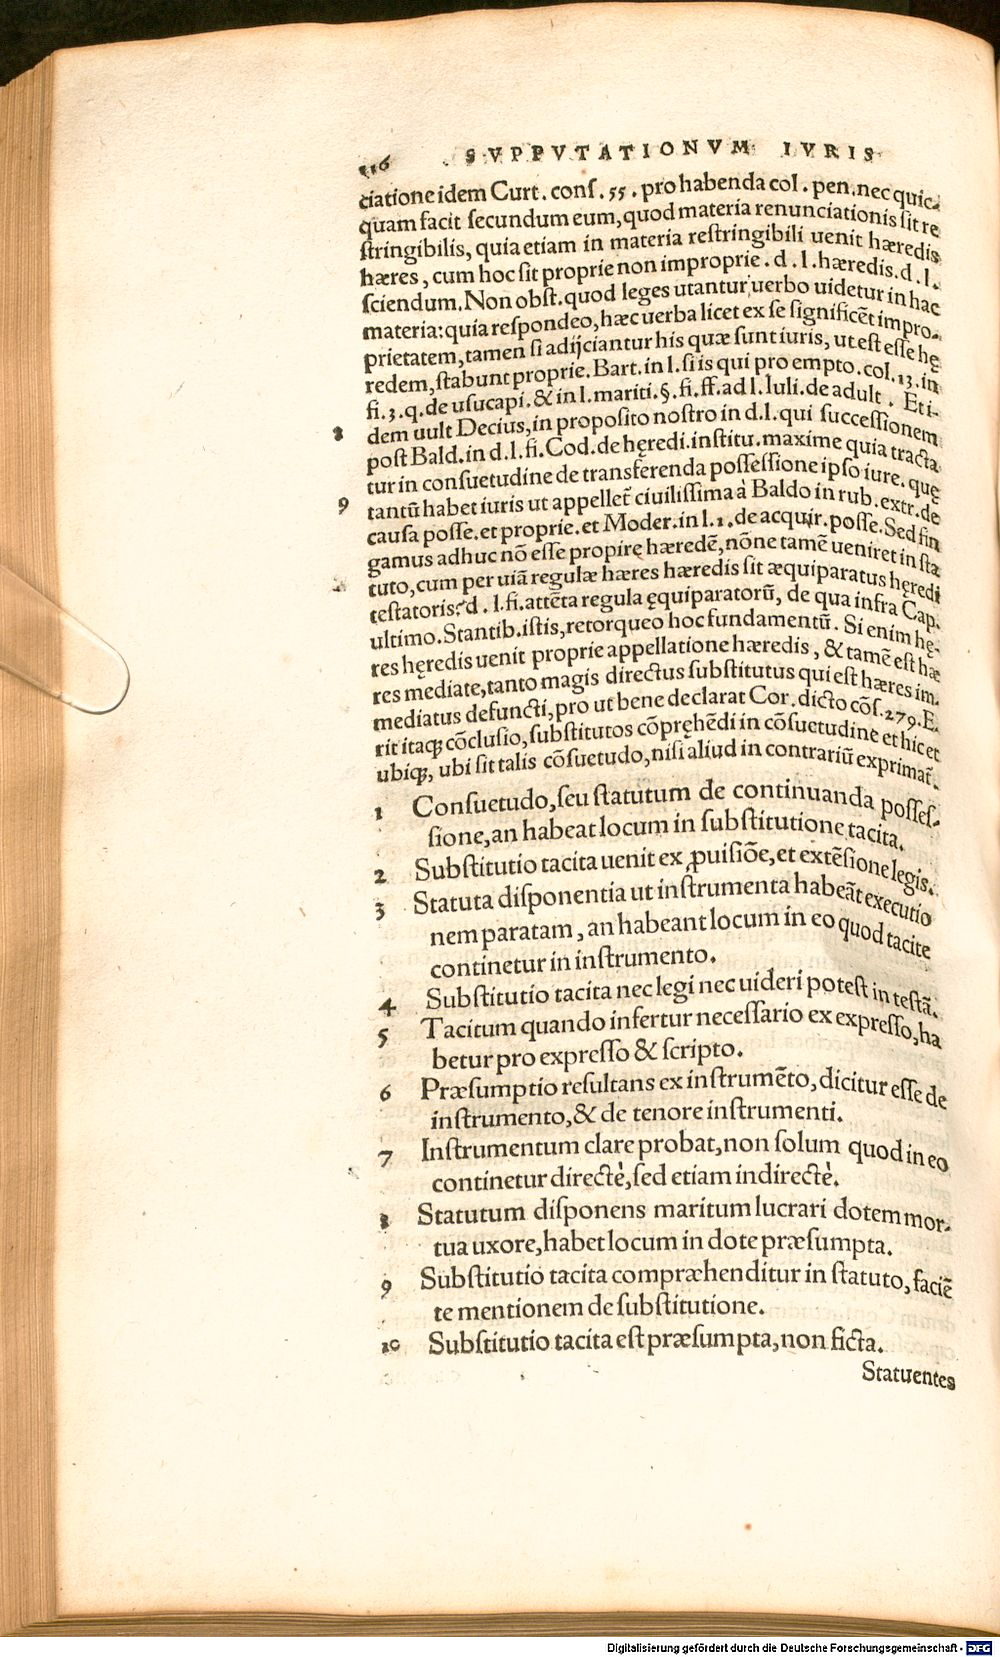 116 SVPPVTATIONVM IVRIS
ciatione idem Curt. conſ. 55. pro habenda col. pen. nec quic-
quam facit ſecundum eum, quod materia renunciationis ſit re
ſtringibilis, quia etiam in materia reſtringibili uenit hæredis
hæres, cum hoc ſit proprie non improprie. d. l. hæredis. d. l.
ſciendum. Non obſt. quod leges utantur uerbo uidetur in hac
materia: quia reſpondeo, hæc uerba licet ex ſe ſignificẽt impro-
prietatem, tamen ſi adijciantur his quæ ſunt iuris, ut eſt eſſe hę
redem, ſtabunt proprie. Bart. in l. ſi is qui pro empto. col. 13. in
fi. 3. q. de uſucapi. & in l. mariti. §. fi. ff. ad l. Iuli. de adult. Et i-
8 dem uult Decius, in propoſito noſtro in d. l. qui ſucceſſionem
poſt Bald. in d. l. fi. Cod. de hęredi. inſtitu. maxime quia tracta
tur in conſuetudine de transferenda poſſeſſione ipſo iure. quę
9 tantũ habet iuris ut appellet̃ ciuiliſſima à Baldo in rub. extr. de
cauſa poſſe. et proprie. et Moder. in l. 1. de acquir. poſſe. Sed fin
gamus adhuc nõ eſſe propirę hæredẽ, nõne tamẽ ueniret in ſta
tuto, cum per uiã regulæ hæres hæredis ſit æquiparatus hęredi
teſtatoris? d. l. fi. attẽta regula ęquiparatorũ, de qua infra Cap.
ultimo. Stantib. iſtis, retorqueo hoc fundamentũ. Si enim hę-
res hęredis uenit proprie appellatione hæredis, & tamẽ eſt hæ
res mediate, tanto magis directus ſubſtitutus qui eſt hæres im-
mediatus defuncti, pro ut bene declarat Cor. dicto cõſ. 279. E.
rit itaq; cõcluſio, ſubſtitutos cõpręhẽdi in cõſuetudine et hic et
ubiq;, ubi ſit talis cõſuetudo, niſi aliud in contrariũ exprimat̃.
1 Conſuetudo, ſeu ſtatutum de continuanda poſſeſ-
ſione, an habeat locum in ſubſtitutione tacita.
2 Subſtitutio tacita uenit ex ꝓuiſiõe, et extẽſione legis.
3 Statuta diſponentia ut inſtrumenta habeãt executio
nem paratam, an habeant locum in eo quod tacite
continetur in inſtrumento.
4 Subſtitutio tacita nec legi nec uideri poteſt in teſtã.
5 Tacitum quando infertur neceſſario ex expreſſo, ha
betur pro expreſſo & ſcripto.
6 Præſumptio reſultans ex inſtrumẽto, dicitur eſſe de
inſtrumento, & de tenore inſtrumenti.
7 Inſtrumentum clare probat, non ſolum quod in eo
continetur directè, ſed etiam indirectè.
8 Statutum diſponens maritum lucrari dotem mor-
tua uxore, habet locum in dote præſumpta.
9 Subſtitutio tacita compræhenditur in ſtatuto, faciẽ
te mentionem de ſubſtitutione.
10 Subſtitutio tacita eſt præſumpta, non ficta.
Statuentes
Digitalisierung gefördert durch die Deutsche Forschungsgemeinschaft - DFG